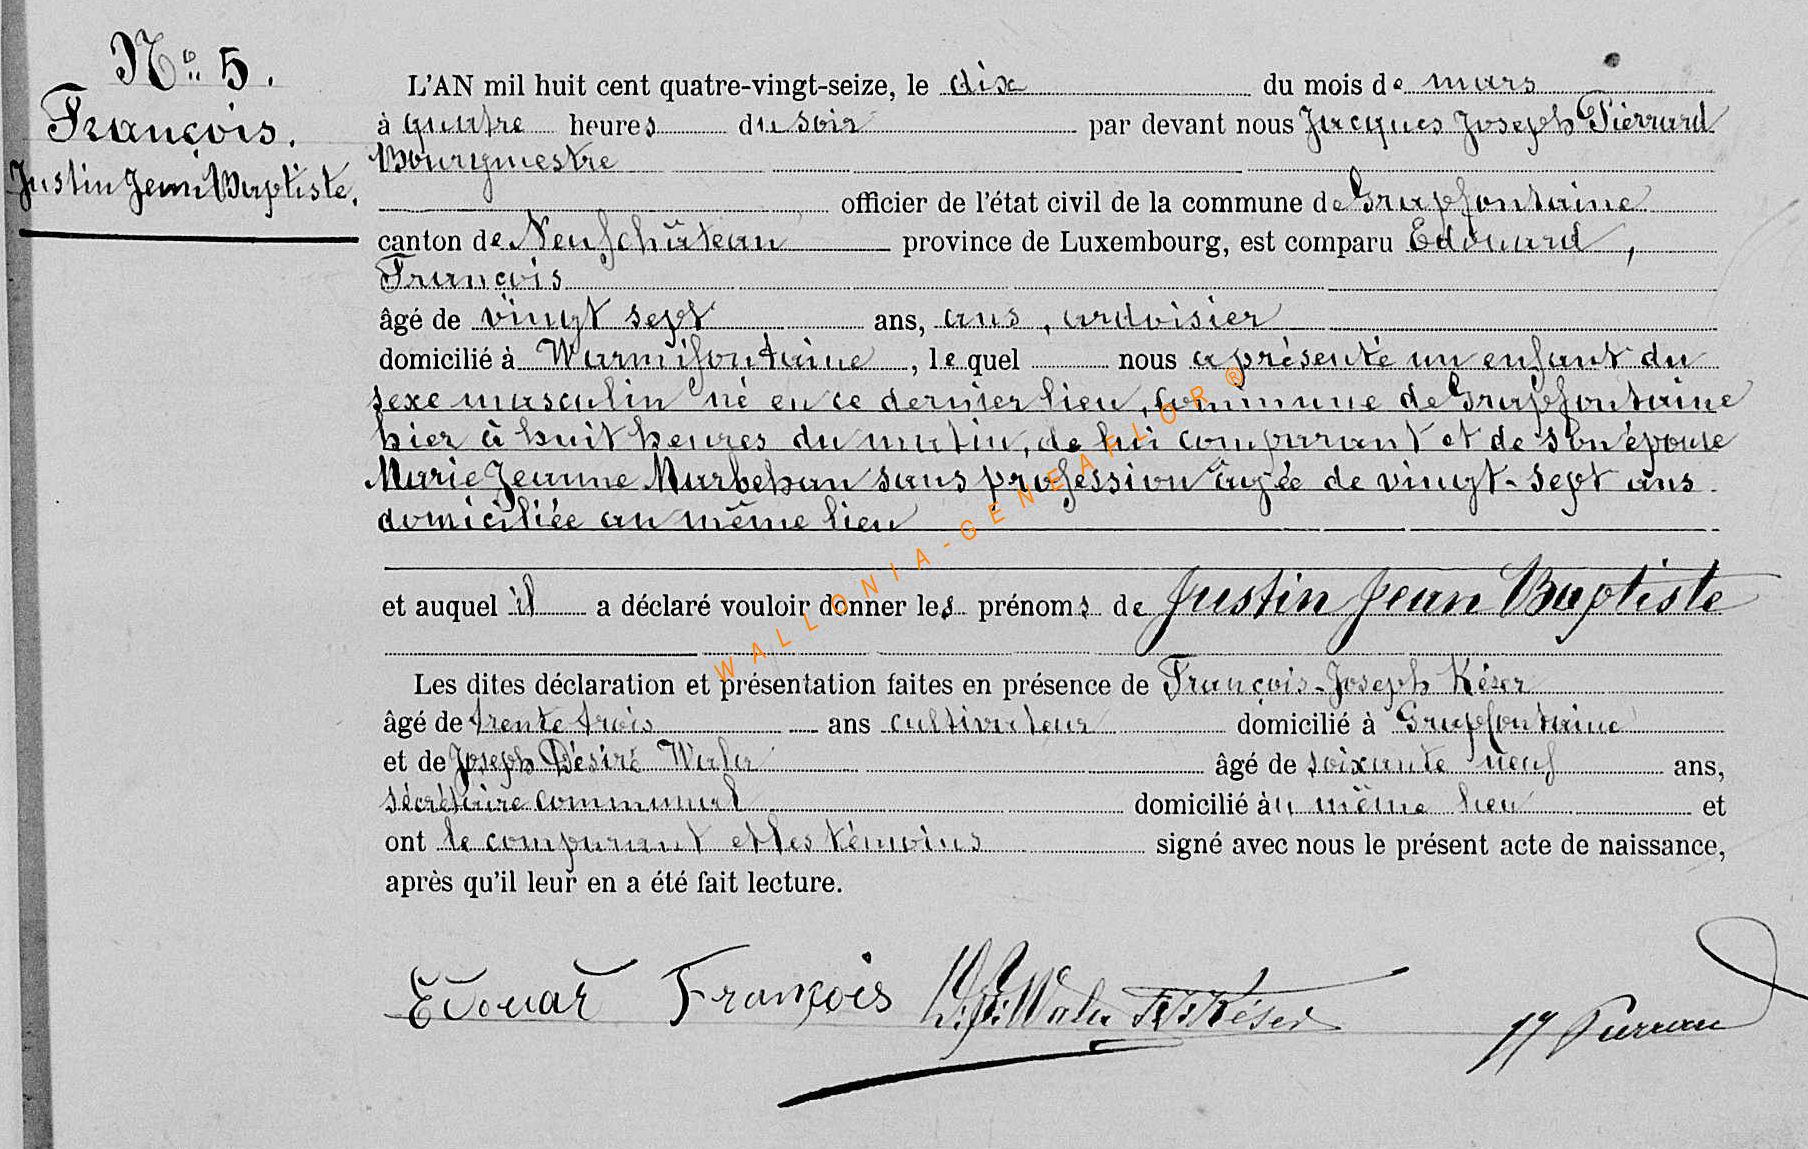 N° 5.
François.
Justin Jean Baptiste.
L'AN mil huit cent quatre-vingt-seize, le dix du mois de mars
à quatre heures du soir par devant nous Jacques Joseph Piérrard
Bourgmestre
officier de l'état civil de la commune de Grapfontaine
canton de Neufchâteau province de Luxembourg, est comparu Edouard,
François
âgé de vingt sept ans, ans, ardoisier
domicilié à Warmifontaine, lequel nous a présenté un enfant du
sexe masculin né en ce dernier lieu, commune de Grapfontaine
hier à huit heures du matin, de lui comparant et de son épouse
Marie Jeanne Marbehan sans profession âgée de vingt-sept ans
domiciliée au même lieu
et auquel il a déclaré vouloir donner les prénoms de Justin Jean Baptiste
Les dites déclaration et présentation faites en présence de François-Joseph Késer
âgé de trente trois ans cultivateur domicilié à Grapfontaine
et de Joseph Désiré Walér âgé de soixante neuf ans,
sécrétaire communal domicilié au même lieu et
ont le comparant et les témoins signé avec nous le présent acte de naissance,
après qu'il leur en a été fait lecture.
Edouar François Waler Késer JJ Pierrard
WALLONIA-GENEAFLOR®